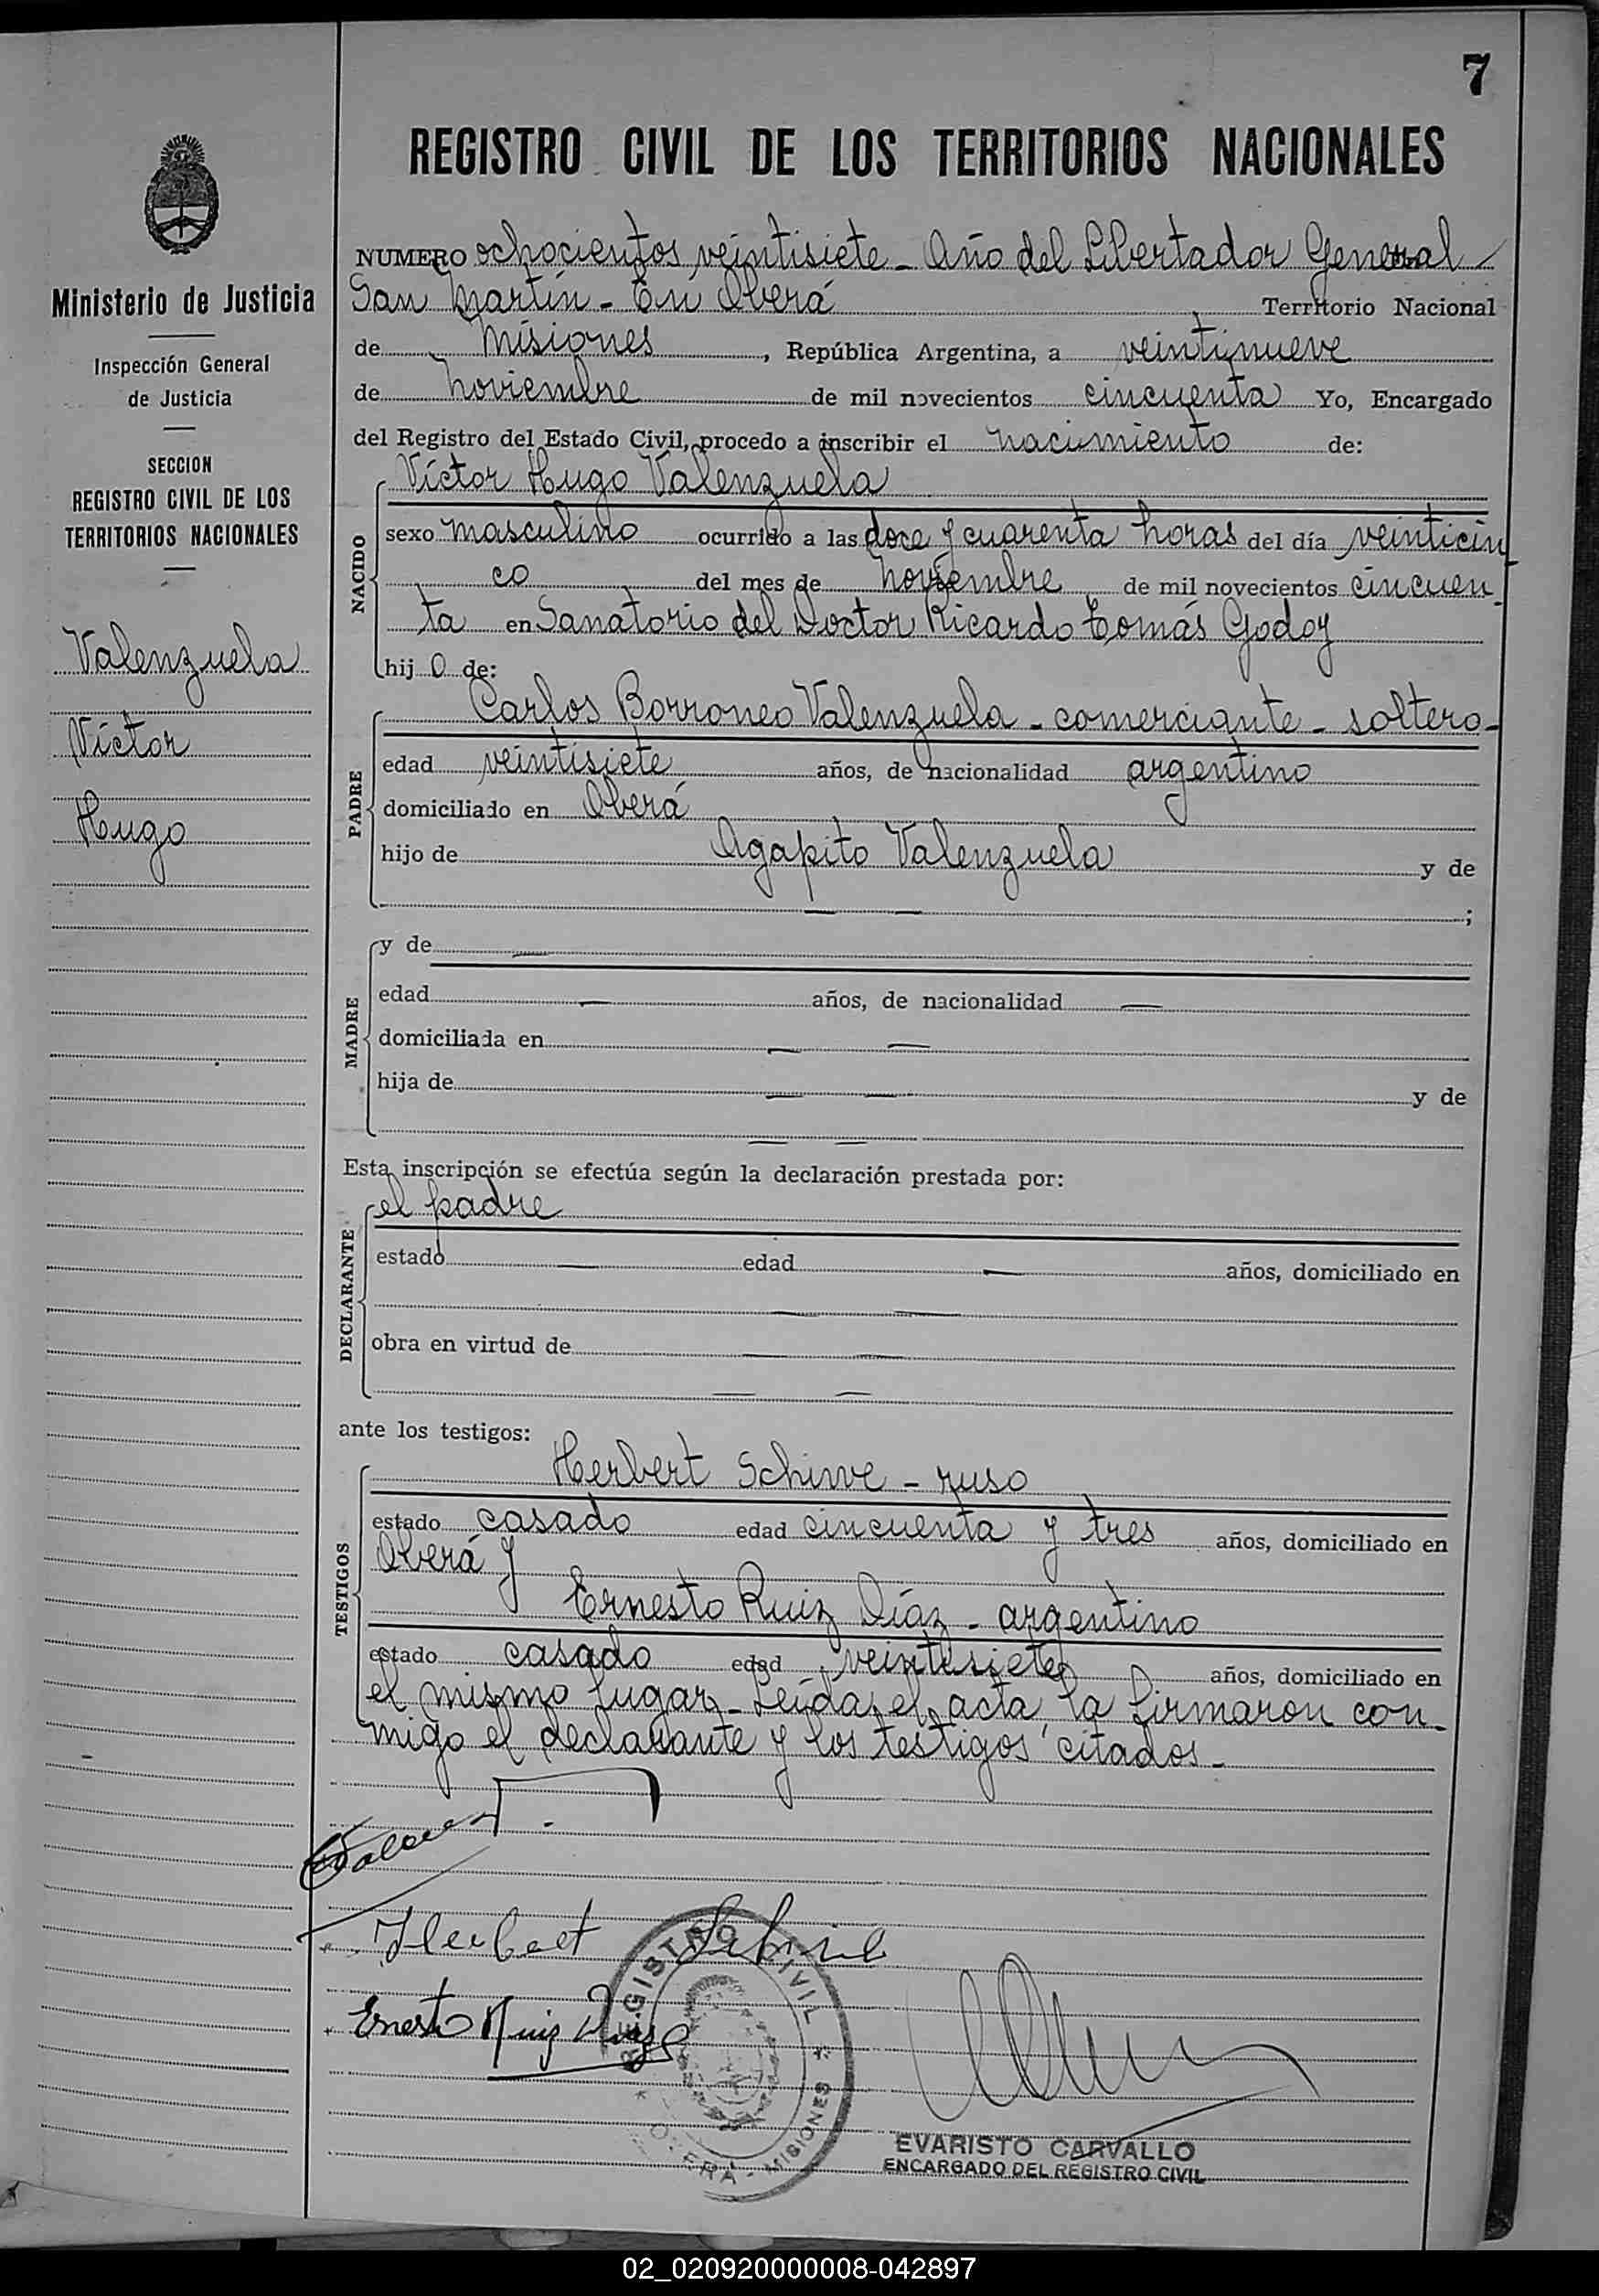 7
REGISTRO CIVIL DE LOS TERRITORIOS NACIONALES
Ministerio de Justicia
Inspección General
de Justicia
SECCION
REGISTRO CIVIL DE LOS
TERRITORIOS NACIONALES
Valenzuela
Víctor
Hugo
NUMERO ochocientos veintisiete - Año del Libertador General
San Martín - En Oberá Territorio Nacional
de Misiones, República Argentina, a veintinueve
de Noviembre de mil novecientos cincuenta Yo, Encargado
del Registro del Estado Civil, procedo a inscribir el nacimiento de:
NACIDO
Víctor Hugo Valenzuela
sexo masculino ocurrido a las doce y cuarenta horas del día veinticin
co del mes de Noviembre de mil novecientos cincuen-
ta en Sanatorio del Doctor Ricardo Tomás Godoy
hijo de:
PADRE
Carlos Borroneo Valenzuela - comerciante - soltero -
edad veintisiete años, de nacionalidad argentino
domiciliado en Oberá
hijo de Agapito Valenzuela y de
— — ;
MADRE
y de —
edad — años, de nacionalidad —
domiciliada en — —
hija de — — y de
— —
Esta inscripción se efectúa según la declaración prestada por:
DECLARANTE
el padre
estado — edad — años, domiciliado en
— —
obra en virtud de — —
— —
ante los testigos:
TESTIGOS
Herbert Schiwe - ruso
estado casado edad cincuenta y tres años, domiciliado en
Oberá y
Ernesto Ruiz Díaz - argentino
estado casado edad veintisiete años, domiciliado en
el mismo lugar - Leída el acta, la firmaron con-
migo el declarante y los testigos citados -
Herbert
Ernesto Ruiz Diaz
REGISTRO CIVIL
OBERÁ - MISIONES
EVARISTO CARVALLO
ENCARGADO DEL REGISTRO CIVIL
02_020920000008-042897